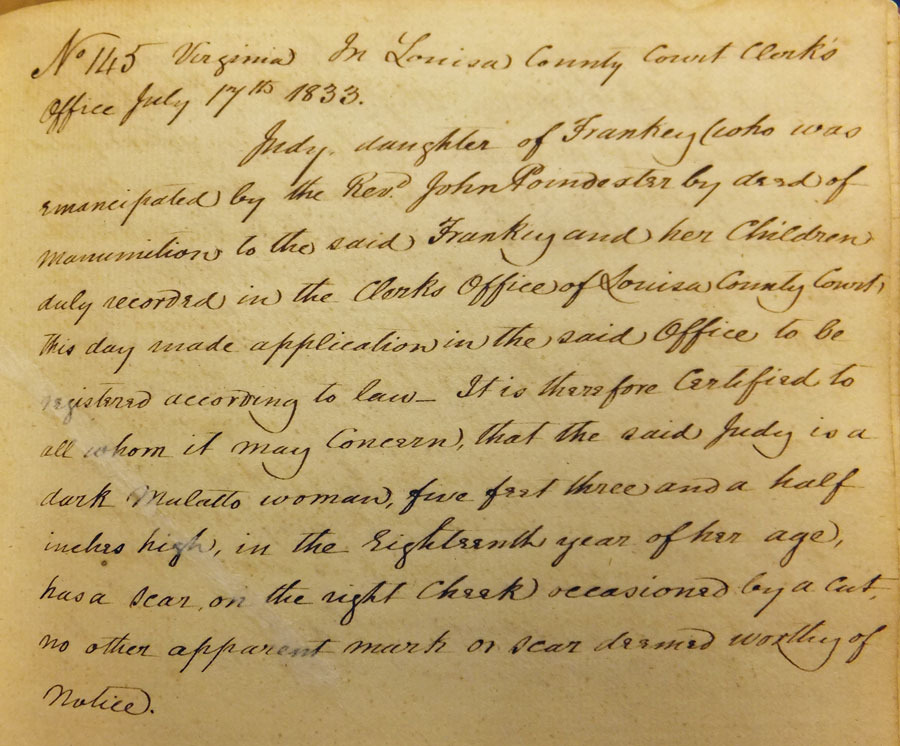 No 145 Virginia In Louisa County Court Clerk's
Office July 17th 1833.
Judy, daughter of Frankey (who was
emancipated by the Revd. John Poindexter by deed of
manumition to the said Frankey and her Children
duly recorded in the Clerks Office of Louisa County Court,
this day made application in the said Office to be
registered according to law— It is therefore Certified to
all whom it may Concern, that the said Judy is a
dark Mulatto woman, five feet three and a half
inches high, in the Eighteenth year of her age,
has a scar on the right Cheek occasioned by a cut,
no other apparent mark or scar deemed worthy of
Notice.